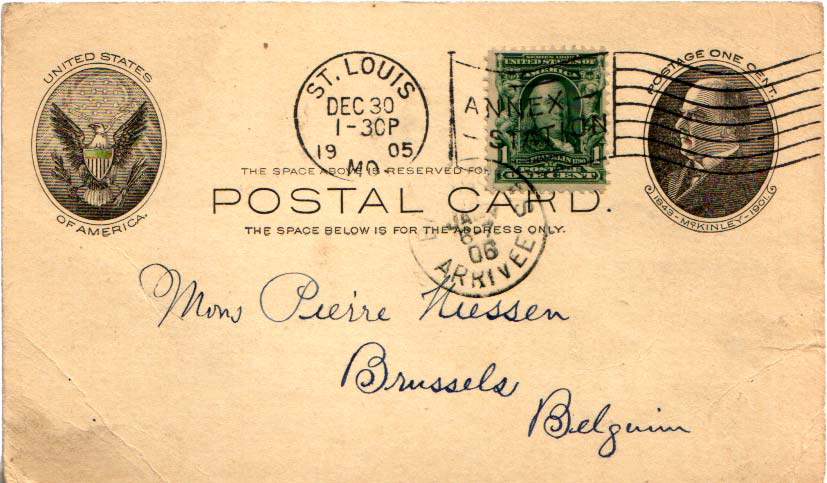 UNITED STATES
OF AMERICA.
ST. LOUIS
DEC 30
1-30P
19 05
MO.
ANNEX
STATION
SERIES 1902
UNITED STATES OF
AMERICA
FRANKLIN
1 1
POSTAGE
ONE CENT
POSTAGE ONE CENT.
1843-McKINLEY-1901.
THE SPACE ABOVE IS RESERVED FOR
POSTAL CARD.
THE SPACE BELOW IS FOR THE ADDRESS ONLY.
06
ARRIVEE
Mons Pierre Niessen
Brussels
Belgium